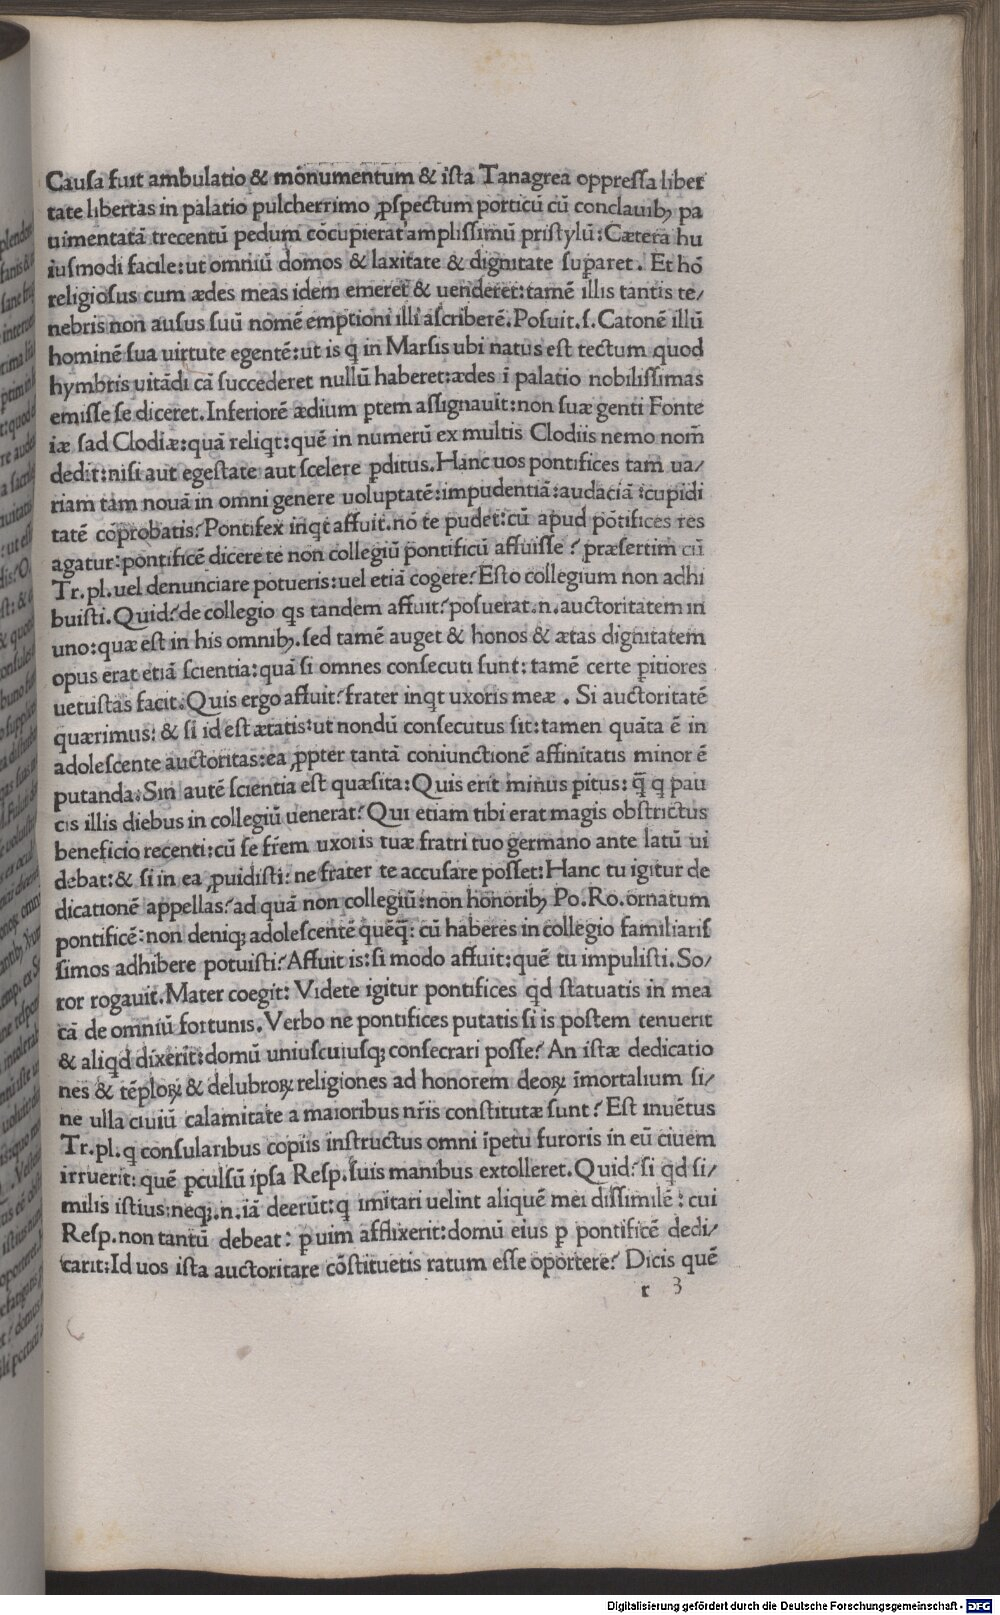 Causa fuit ambulatio & mōnumentum & ista Tanagrea oppressa liber
tate libertas in palatio pulcherrimo ꝓspectum porticū cū conclauibꝫ pa
uimentatā trecentū pedum cōcupierat amplissimū pristylū: Cætera hu
iusmodi facile: ut omniū domos & laxitate & dignitate suꝑaret. Et hō
religiosus cum ædes meas idem emeret & uenderet: tamē illis tantis te/
nebris non ausus suū nomē emptioni illi ascriberē. Posuit .s. Catonē illū
hominē sua uirtute egentē: ut is q̇ in Marsis ubi natus est tectum quod
hymbris uitādi cā succederet nullū haberet: ædes ī palatio nobilissimas
emisse se diceret. Inferiorē ædium ꝑtem assignauit: non suæ genti Fonte
iæ sad Clodiæ: quā reliqt: quē in numerū ex multis Clodiis nemo nom̄
dedit: nisi aut egestate aut scelere ꝑditus. Hanc uos pontifices tam ua/
riam tam nouā in omni genere uoluptatē: impudentiā: audaciā: cupidi
tatē coprobatis? Pontifex inqt affuit. nō te pudet: cū apud pōtifices res
agatur: pontificē dicere te non collegiū pontificū affuisse? præsertim cū
Tr. pl. uel denunciare potueris: uel etiā cogere? Esto collegium non adhi
buisti. Quid? de collegio qs tandem affuit? posuerat .n. auctoritatem in
uno: quæ est in his omnibꝫ. sed tamē auget & honos & ætas dignitatem
opus erat etiā scientia: quā si omnes consecuti sunt: tamē certe ꝑitiores
uetustas facit. Quis ergo affuit? frater inqt uxoris meæ. Si auctoritatē
quærimus: & si id est ætatis: ut nondū consecutus sit: tamen quāta ē in
adolescente auctoritas: ea ꝓpter tantā coniunctionē affinitatis minor ē
putanda. Sin autē scientia est quæsita: Quis erit minus ꝑitus: q̄ q pau
cis illis diebus in collegiū uenerat? Qui etiam tibi erat magis obstrictus
beneficio recenti: cū se fr̄em uxoris tuæ fratri tuo germano ante latū ui
debat: & si in ea ꝓuidisti: ne frater te accusare posset: Hanc tu igitur de
dicationē appellas? ad quā non collegiū: non honoribꝫ Po. Ro. ornatum
pontificē: non deniqꝫ adolescentē quēq̄: cū haberes in collegio familiaris
simos adhibere potuisti? Affuit is: si modo affuit: quē tu impulisti. So/
ror rogauit. Mater coegit: Videte igitur pontifices qd statuatis in mea
cā de omniū fortunis. Verbo ne pontifices putatis si is postem tenuerit
& aliqd dixerit: domū uniuscuiusqꝫ consecrari posse? An istæ dedicatio
nes & tēploꝝ & delubroꝝ religiones ad honorem deoꝝ īmortalium si/
ne ulla ciuiū calamitate a maioribus nr̄is constitutæ sunt? Est inuētus
Tr. pl. q consularibus copiis instructus omni īpetu furoris in eū ciuem
irruerit: quē ꝑculsū ipsa Resp. suis manibus extolleret. Quid? si qd si/
milis istius: neqꝫ .n. iā deerūt: q imitari uelint aliquē mei dissimilē: cui
Resp. non tantū debeat: ꝑ uim afflixerit: domū eius ꝑ pontificē dedi/
carit: Id uos ista auctoritare cōstituetis ratum esse oportere? Dicis quē
r 3
Digitalisierung gefördert durch die Deutsche Forschungsgemeinschaft - DFG